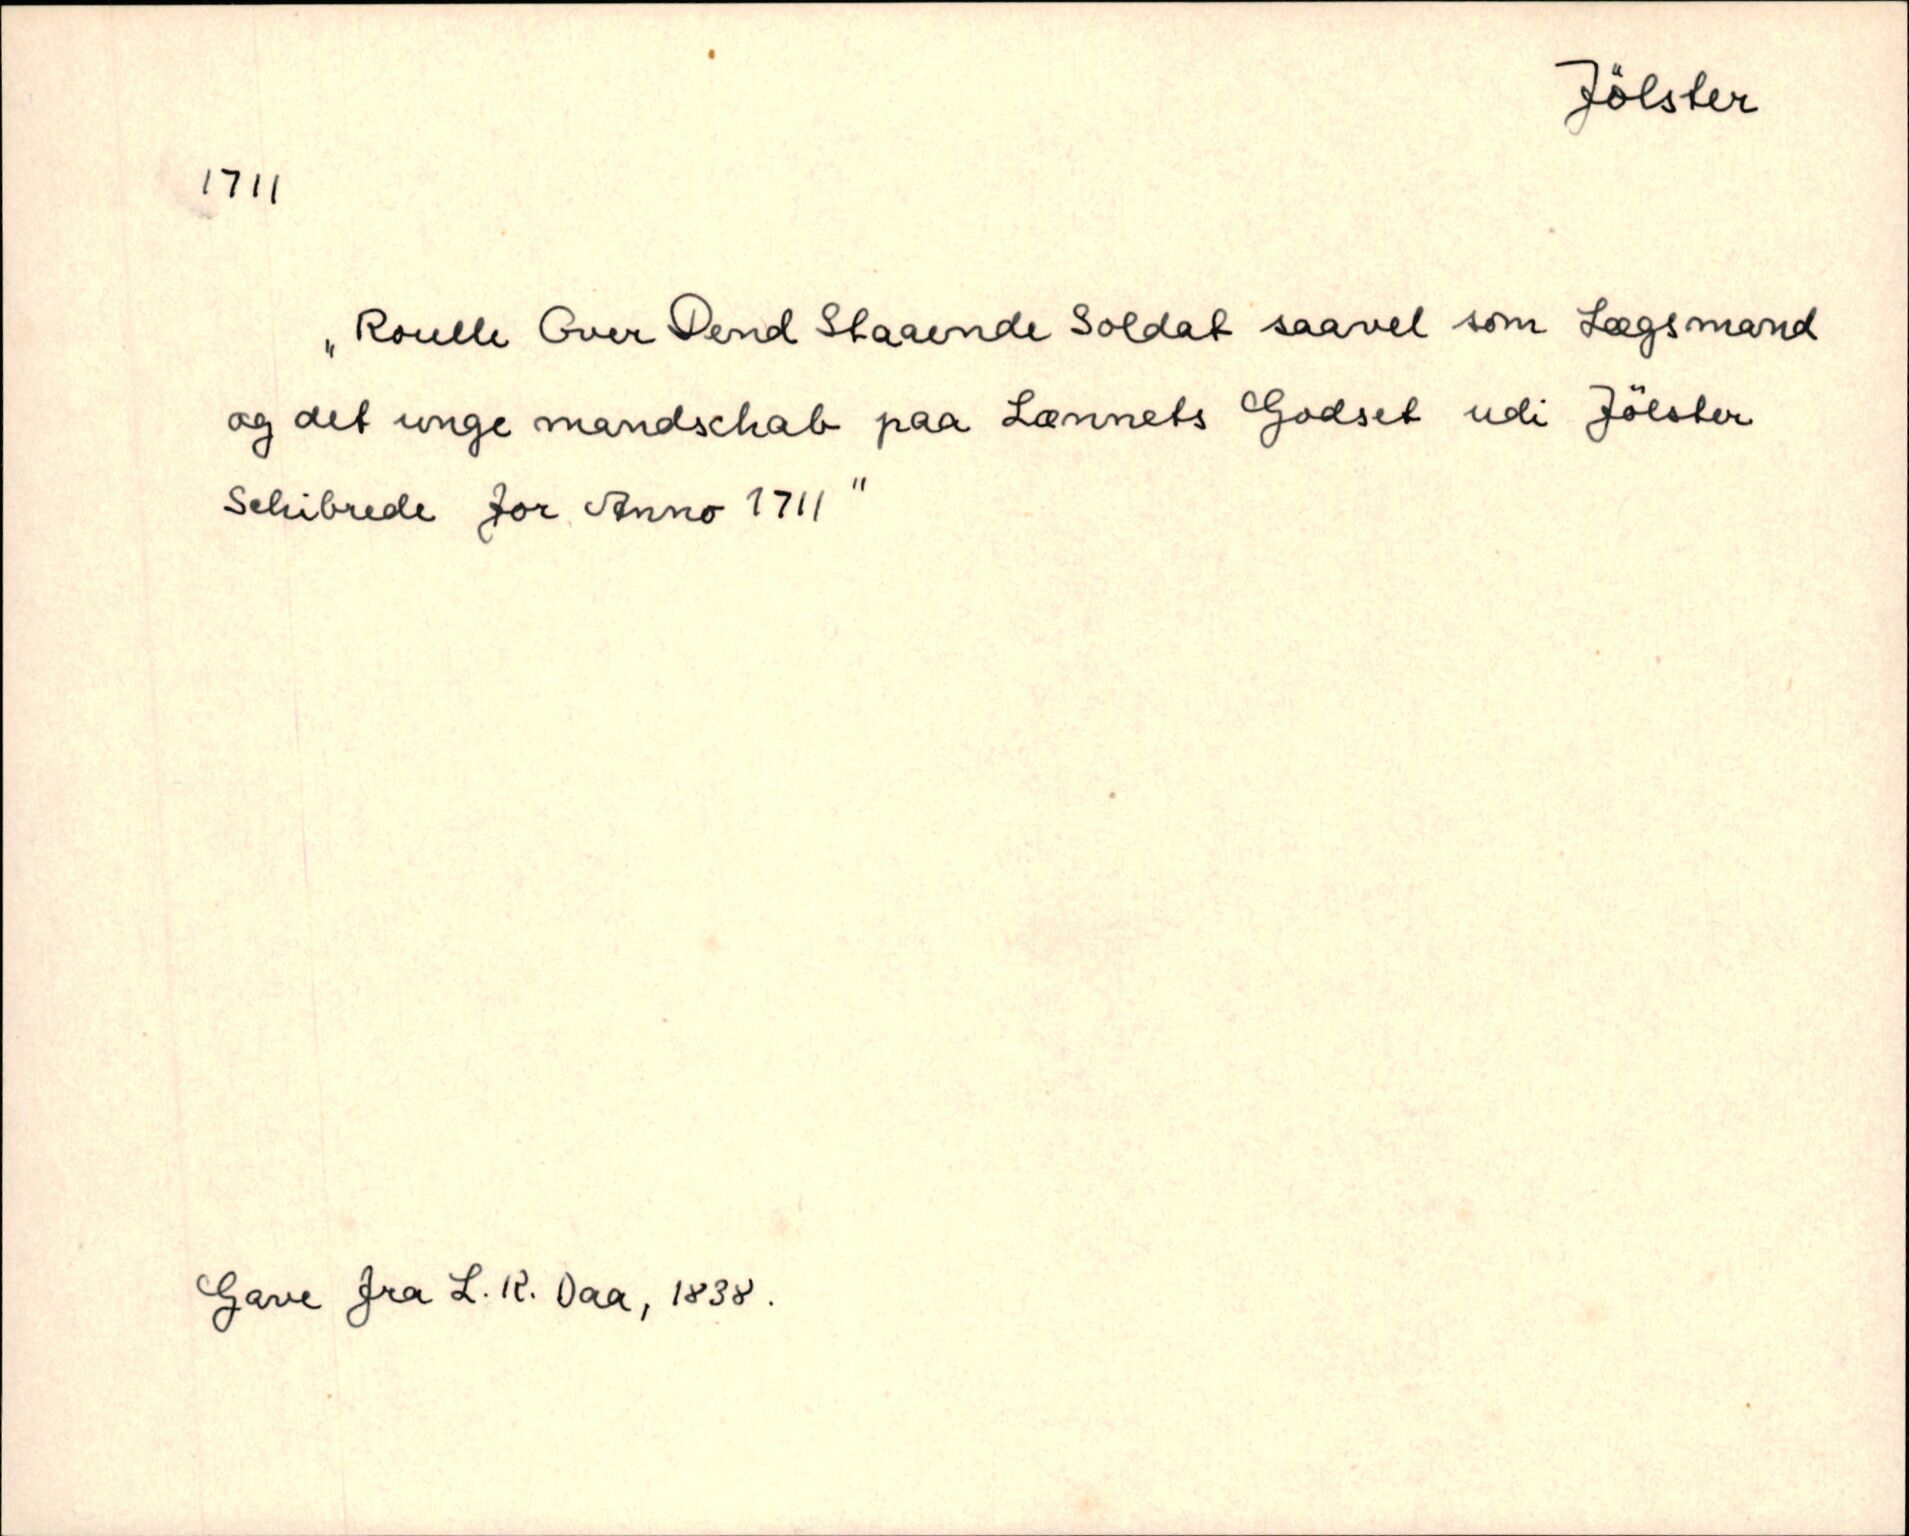 Jölster
1711
„Roulle Over Dend Staaende Soldat saavel som Lægsmand
og det unge mandschab paa Lænnets Godset udi Jölster
Schibrede for Anno 1711"
Gave fra L. K. Daa, 1838.